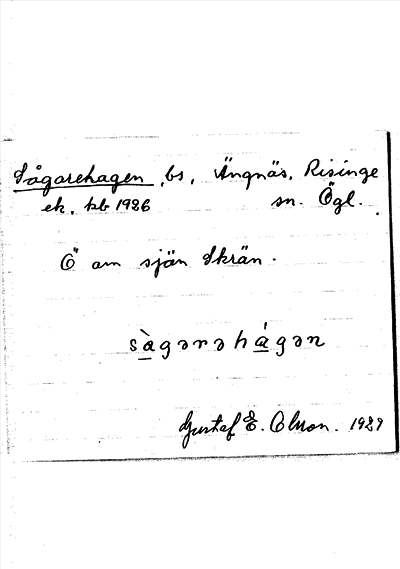 Sågarehagen, bs, Ängnäs, Risinge
ek, kb 1926 sn. Ögl.
Ö om sjön Skrän.
sàgərəhágən
Gustaf E. Olson. 1929